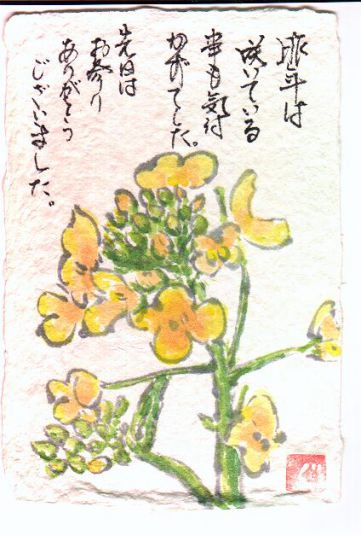 昨年は
咲いている
事も気付
かずでした。
先日は
お参り
ありがとう
ございました。